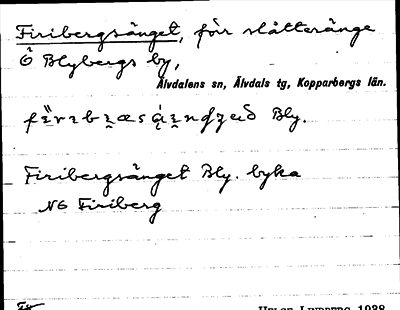 Firibergsänget, förr slåtteränge
Ö Blybergs by,
Älvdalens sn, Älvdals tg, Kopparbergs län.
Bly.
Firibergsänget Bly. byka
NG Firiberg
1938